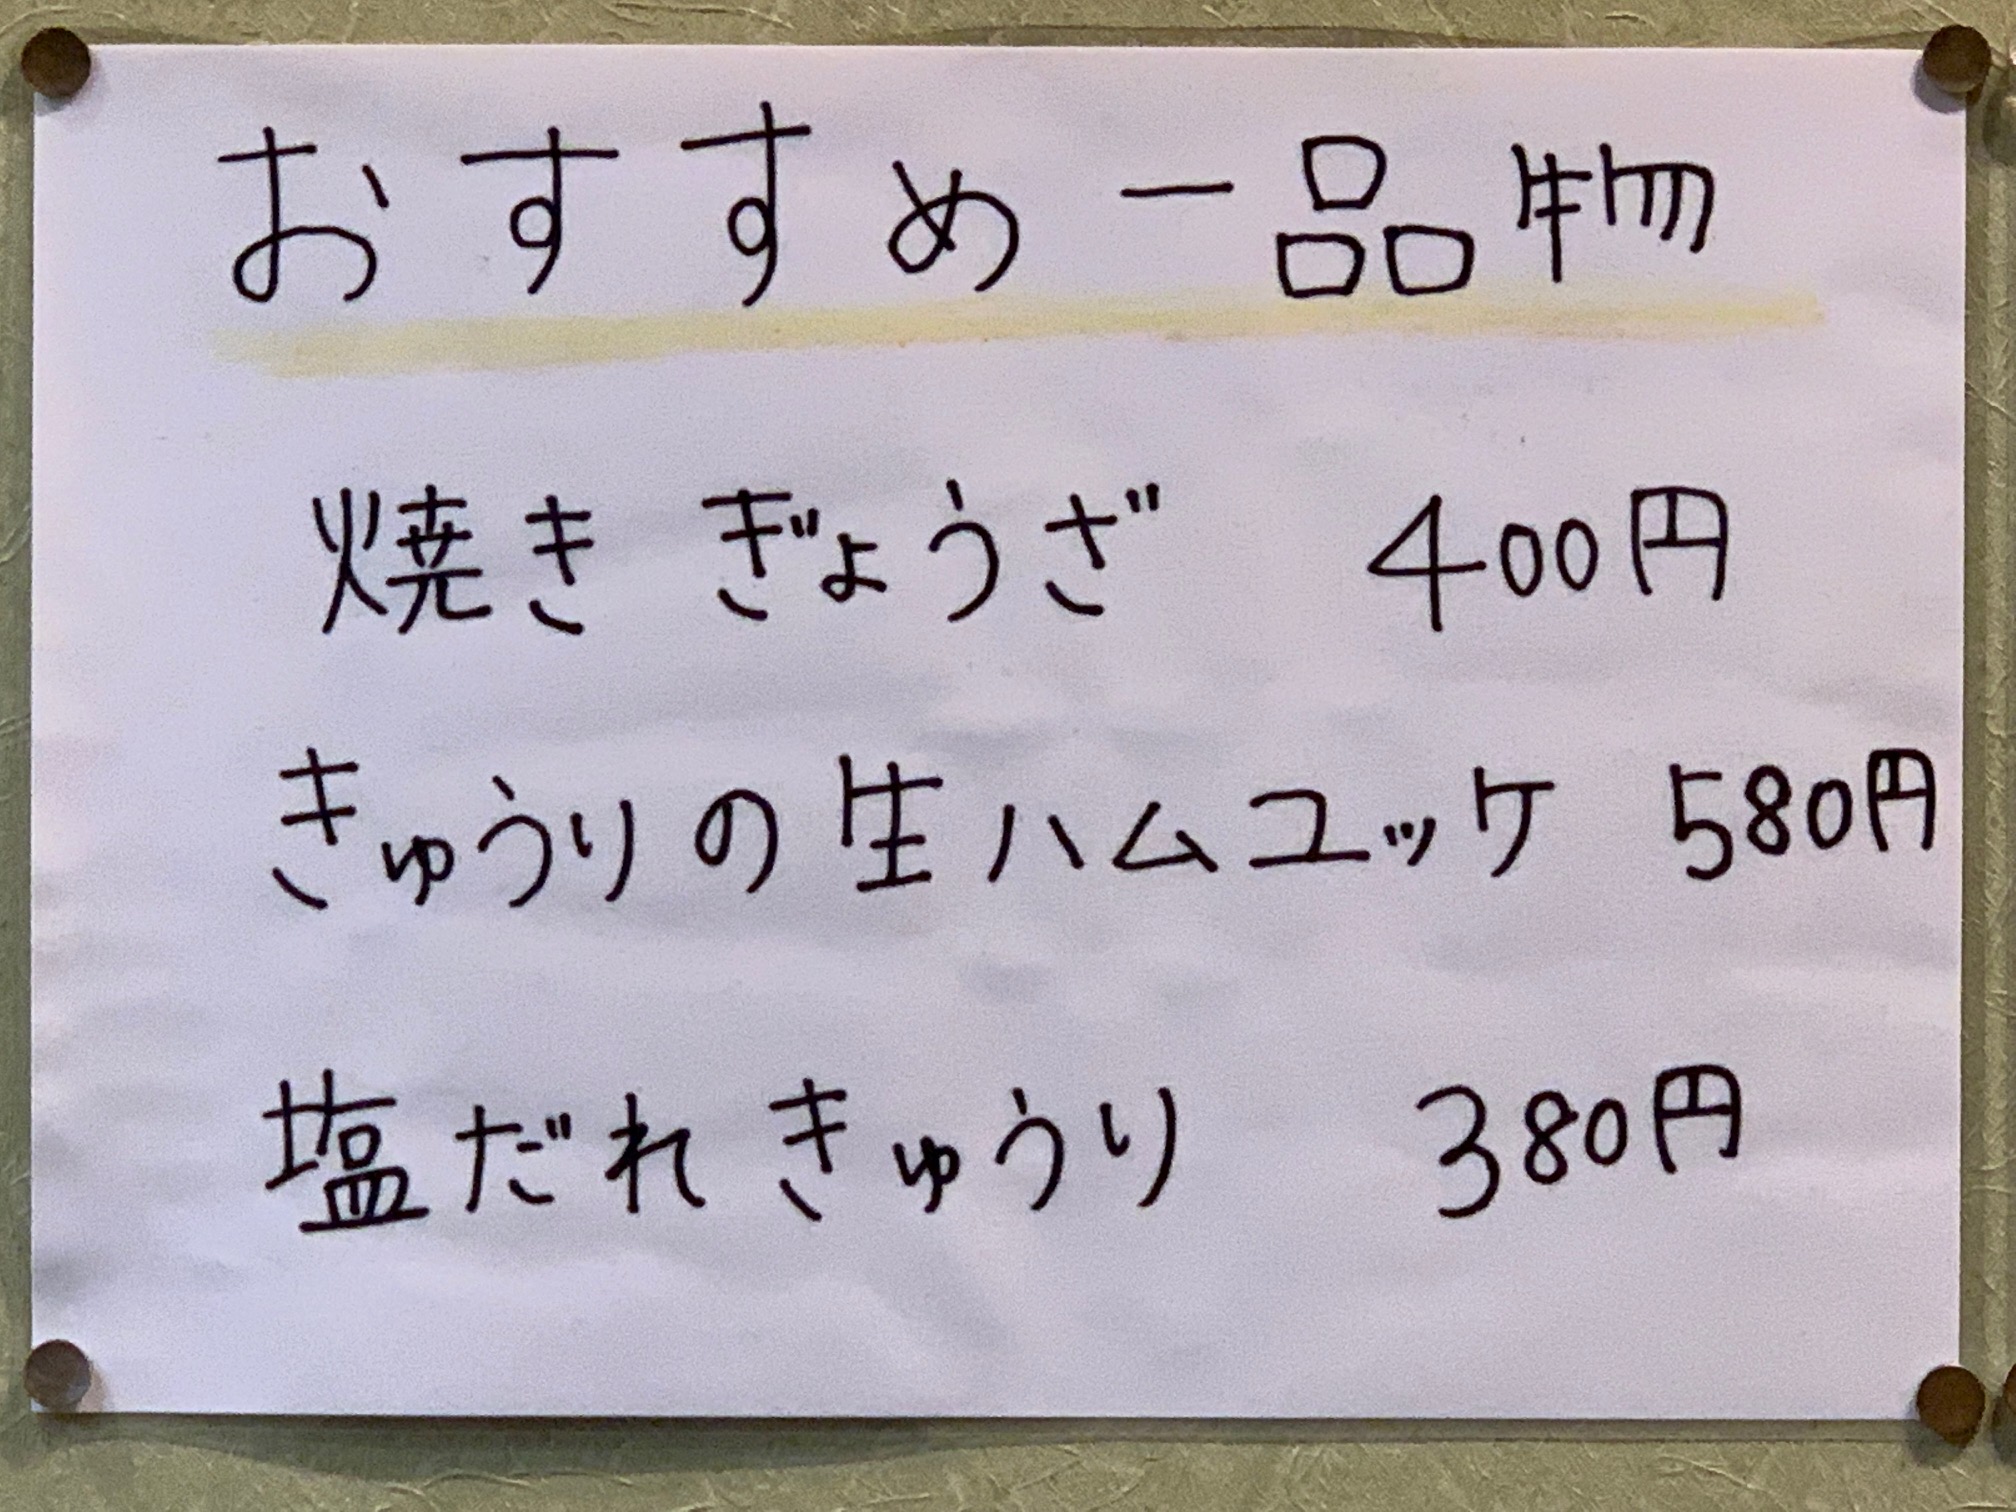 おすすめ一品物
焼きぎょうざ 400円
きゅうりの生ハムユッケ 580円
塩だれきゅうり 380円